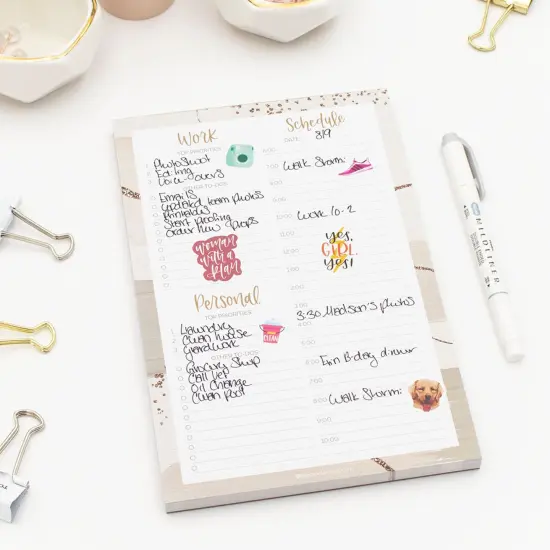 Work
TOP PRIORITIES
1 Photoshoot
2 Editing
3 Voice-overs
OTHER TO-DO'S
Emails
Updated team photos
Printables
Start Proofing
Order New Props
woman
with a
plan
Personal
TOP PRIORITIES
1 Laundry
2 Clean house
3 Yardwork
OTHER TO-DO'S
Grocery Shop
Call
Oil Change
Clean Pool
CLEAN
Schedule
DATE: 3/9
6:00
7:00 Walk Storm:
8:00
9:00
10:00 Work 10-2
11:00
12:00
yes,
GIRL,
yes!
1:00
2:00
3:00 3:30 Madison's photos
4:00
5:00
6:00 Erin B-day dinner
7:00
8:00 Walk Storm:
9:00
10:00
MILDLINER